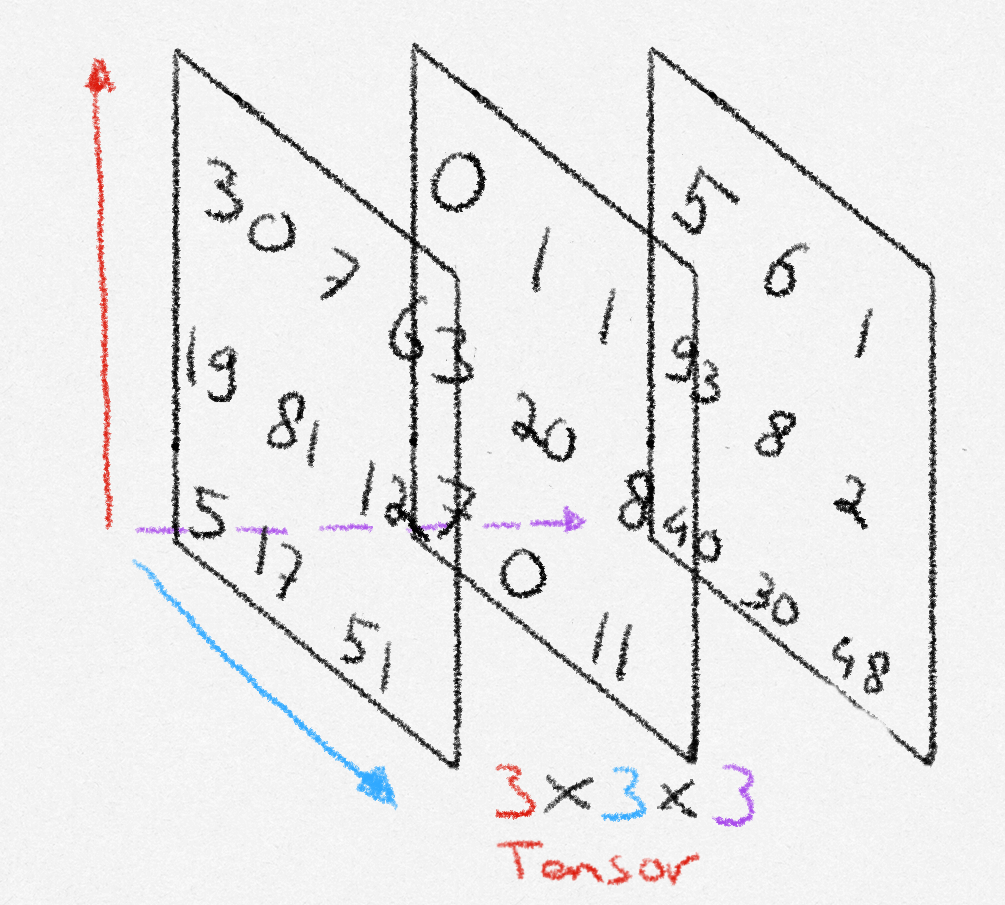 30 7 6
19 81 12
5 17 51
0 1 1
3 20 8
7 0 11
5 6 1
93 8 2
40 30 48
3×3×3
Tensor